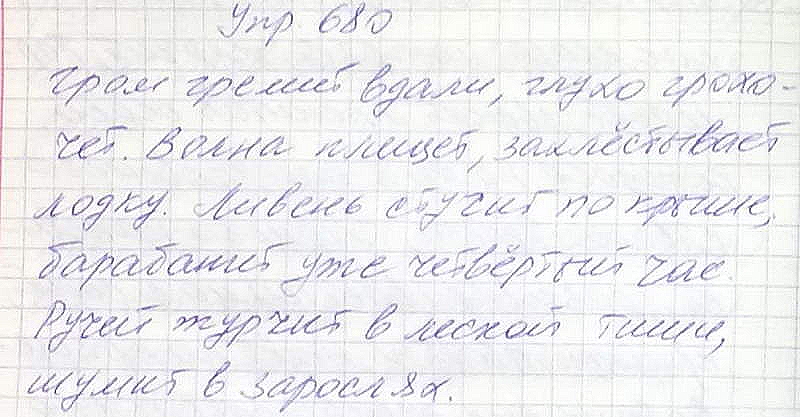 Упр 680
Гром гремит вдали, глухо грохо-
чет. Волна плещет, захлёстывает
лодку. Ливень стучит по крыше,
барабанит уже четвёртый час.
Ручей журчит в лесной тиши,
шумит в зарослях.